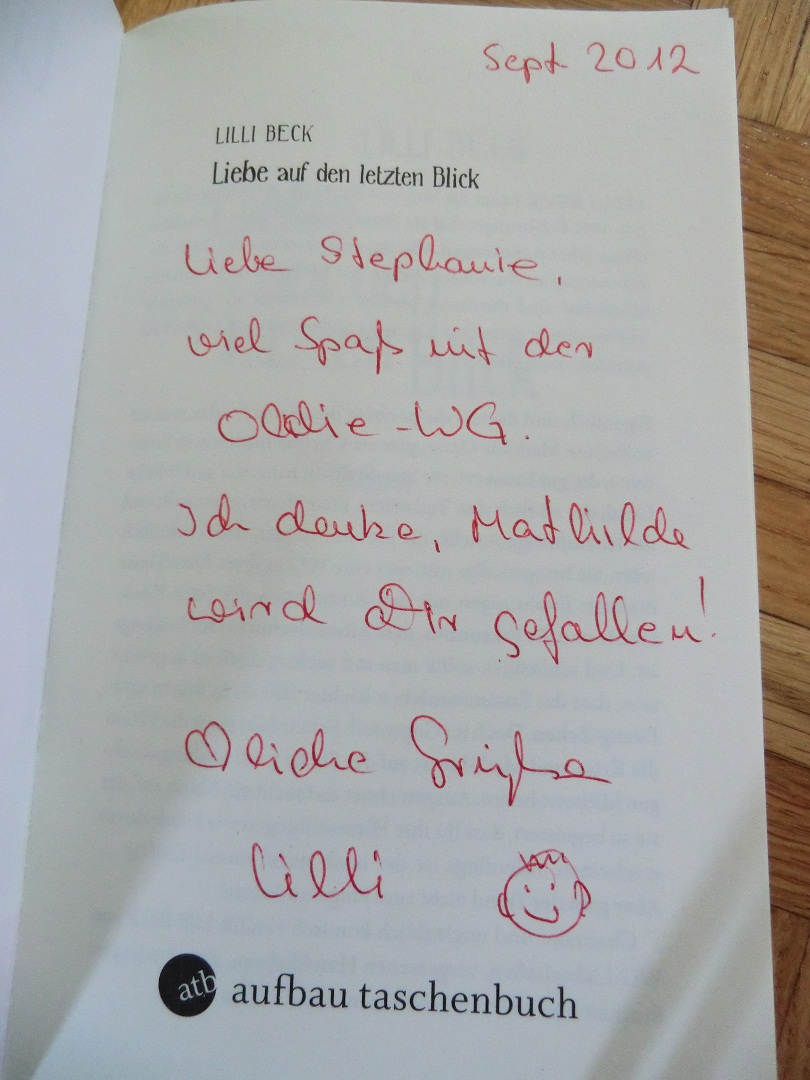 Sept 2012
LILLI BECK
Liebe auf den letzten Blick
Liebe Stephanie,
viel Spaß mit der
Oldie-WG.
Ich denke, Mathilde
wird Dir gefallen!
♡liche Grüße
Lilli
atb aufbau taschenbuch